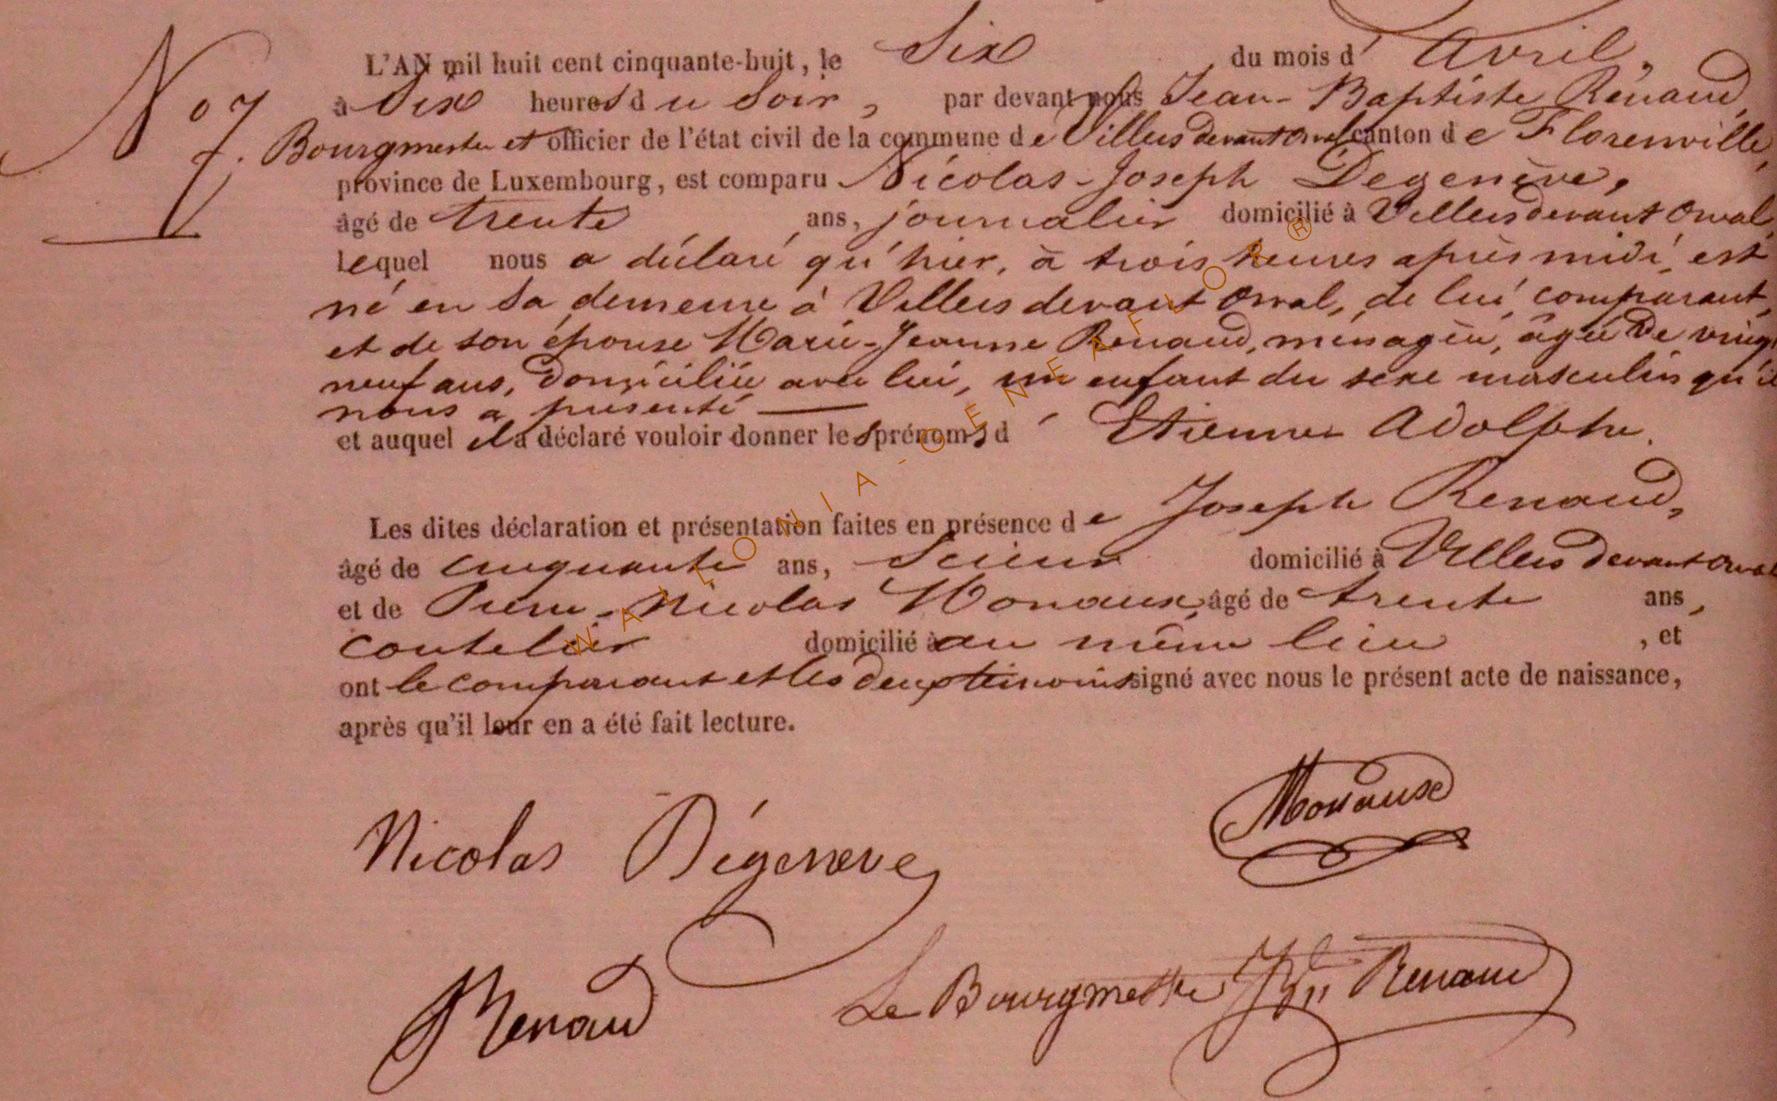 No 7
7.
L'AN mil huit cent cinquante-huit, le Six du mois d' Avril,
à Six heures du Soir, par devant nous Jean-Baptiste Renaud,
Bourgmestre et officier de l'état civil de la commune de Villers devant Orval canton de Florenville,
province de Luxembourg, est comparu Nicolas-Joseph Degenève,
âgé de trente ans, journalier domicilié à Villers devant Orval,
lequel nous a déclaré qu'hier, à trois heures après midi, est
né en sa demeure à Villers devant Orval, de lui, comparant,
et de son épouse Marie-Jeanne Renaud, ménagère, âgée de vingt
neuf ans, domiciliée avec lui, un enfant du sexe masculin qu'il
nous a présenté
et auquel il a déclaré vouloir donner les prénoms d' Etienne Adolphe.
Les dites déclaration et présentation faites en présence de Joseph Renaud,
âgé de cinquante ans, Scieur domicilié à Villers devant Orval
et de Pierre-Nicolas Monause, âgé de trente ans,
coutelier domicilié à au même lieu, et
ont le comparant et les deux témoins signé avec nous le présent acte de naissance,
après qu'il leur en a été fait lecture.
Monause
Nicolas Dégeneve
Renaud
Le Bourgmestre JBte Renaud
WALLONIA-GENEAFLOR®